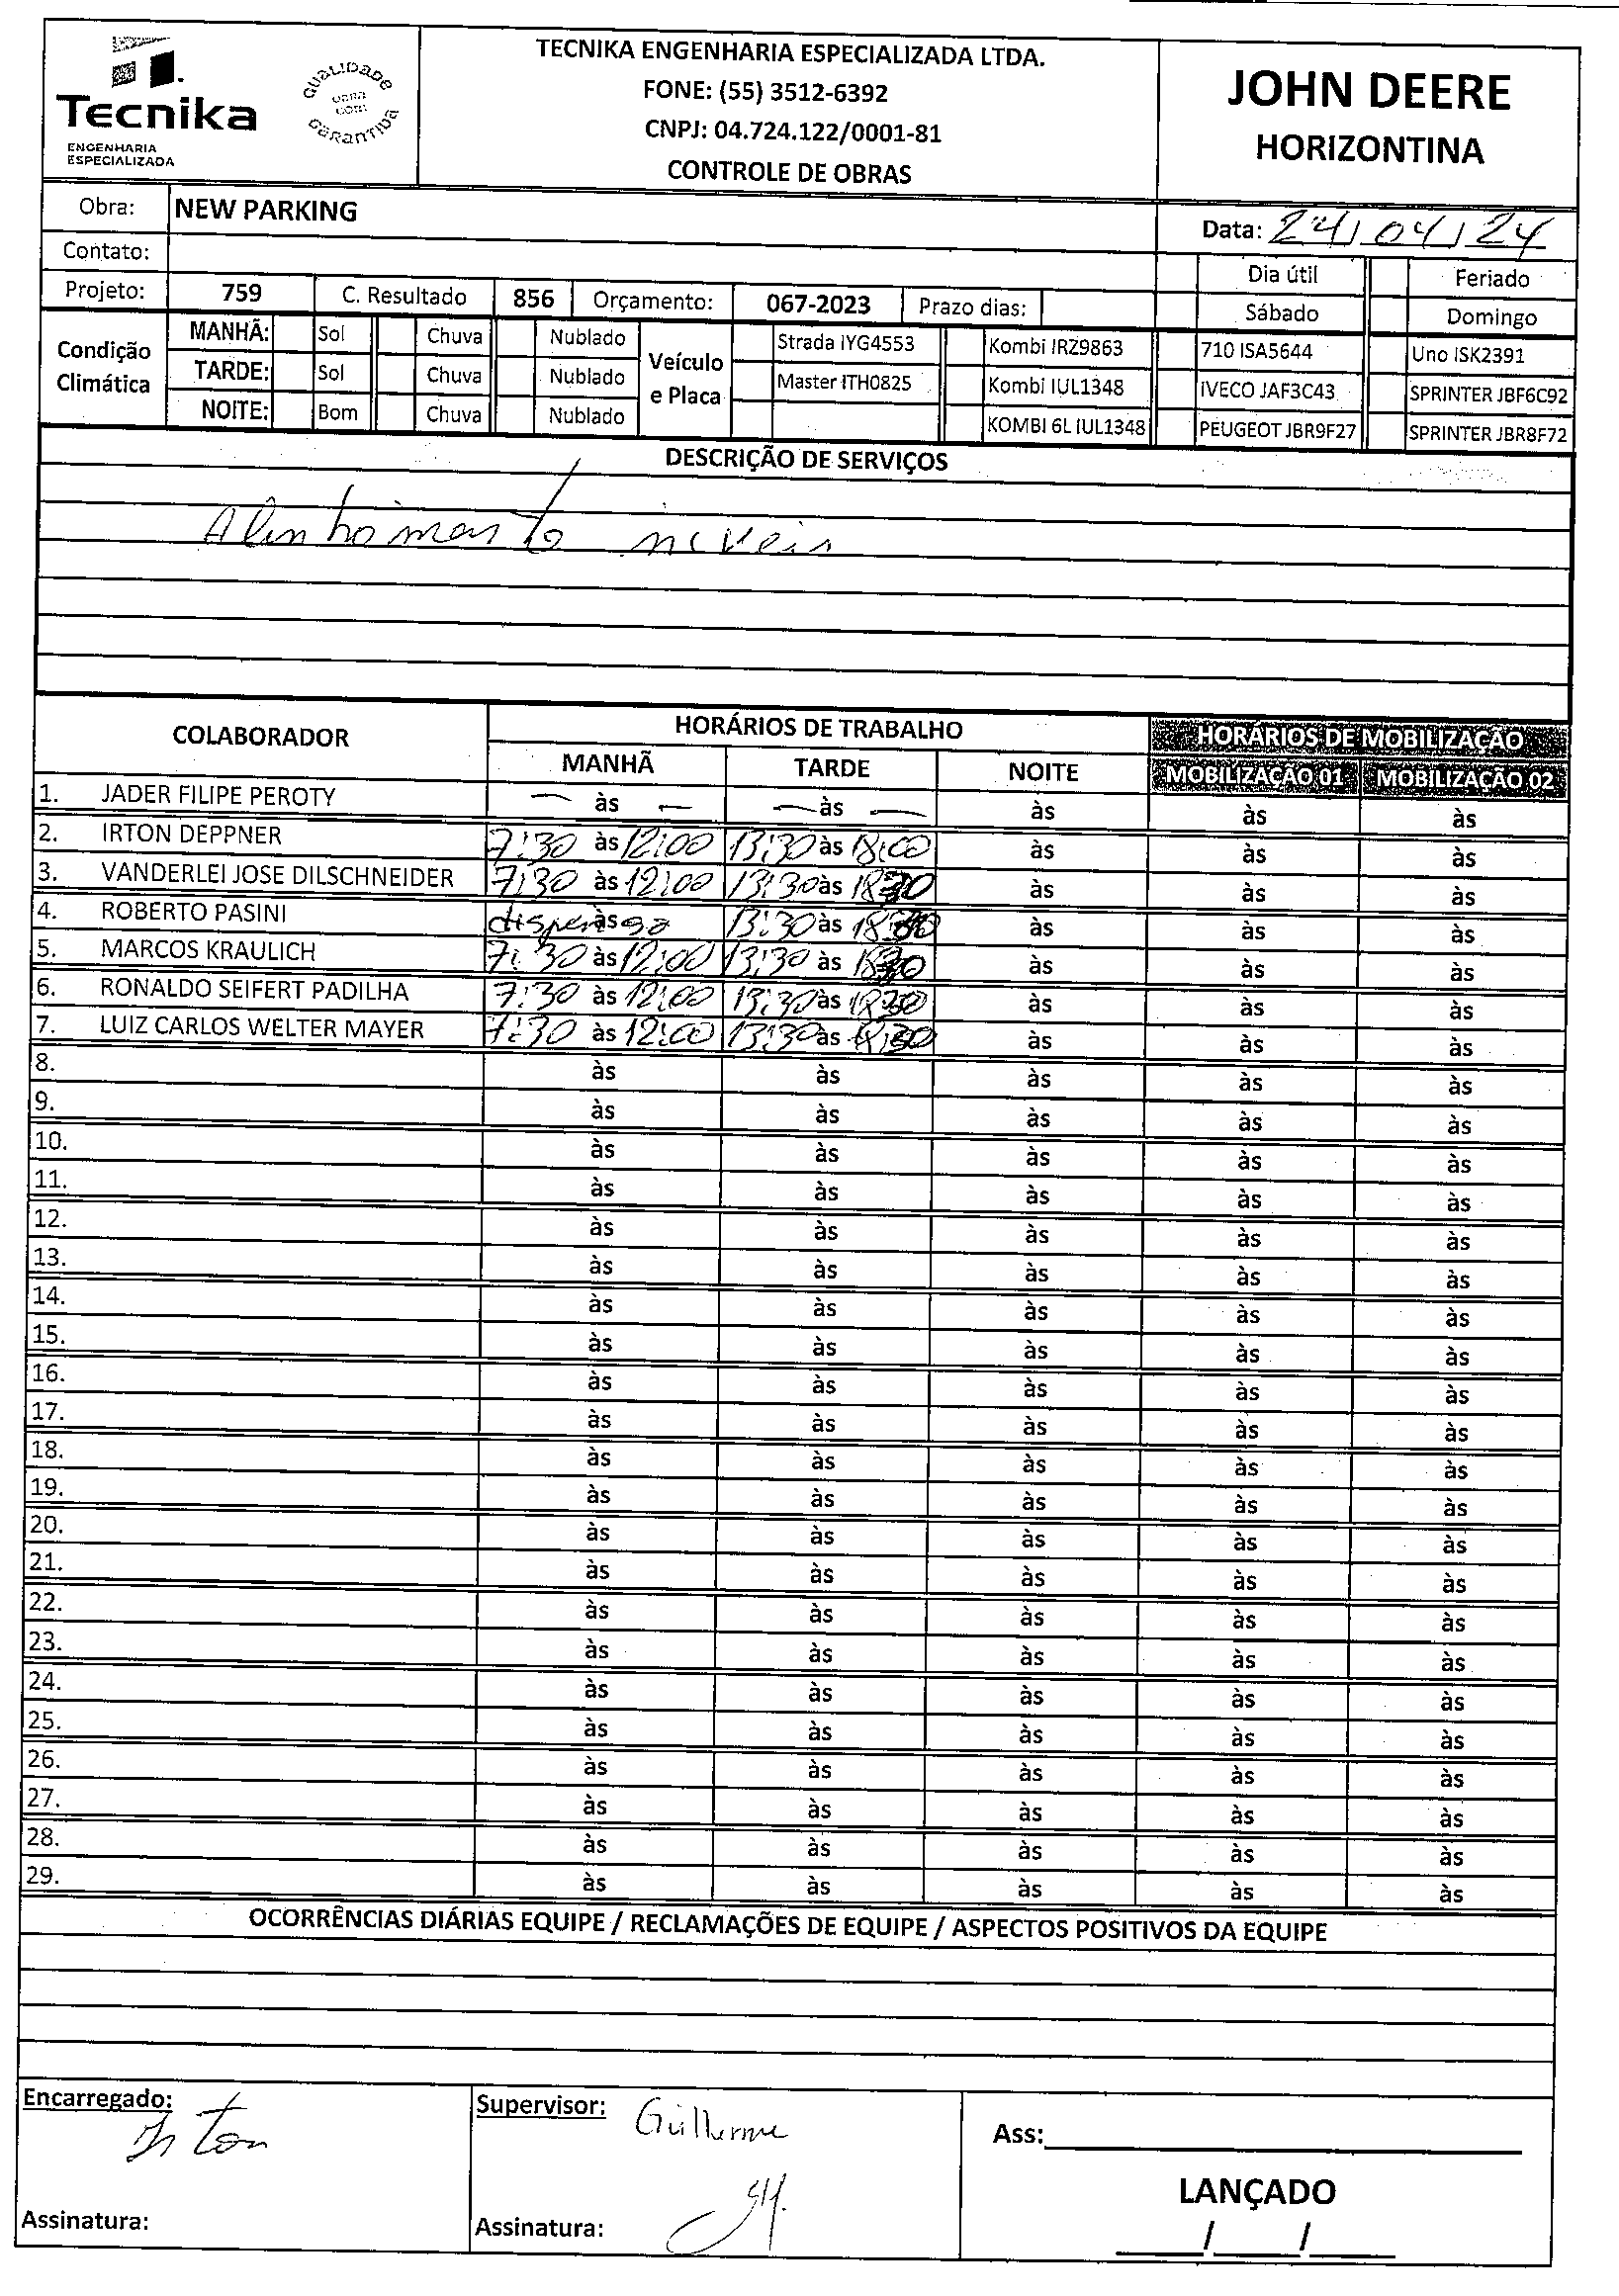 Tecnika
ENGENHARIA
ESPECIALIZADA
QUALIDADE
OBRA
COM
GARANTIDA
TECNIKA ENGENHARIA ESPECIALIZADA LTDA.
FONE: (55) 3512-6392
CNPJ: 04.724.122/0001-81
CONTROLE DE OBRAS
JOHN DEERE
HORIZONTINA
Obra: NEW PARKING
Data: 24/04/24
Contato:
Dia útil Feriado
Projeto: 759 C. Resultado 856 Orçamento: 067-2023 Prazo dias:
Sábado Domingo
Condição Climática
MANHÃ: Sol Chuva Nublado
TARDE: Sol Chuva Nublado
NOITE: Bom Chuva Nublado
Veículo e Placa
Strada IYG4553 Kombi IRZ9863 710 ISA5644 Uno ISK2391
Master ITH0825 Kombi IUL1348 IVECO JAF3C43 SPRINTER JBF6C92
KOMBI 6L IUL1348 PEUGEOT JBR9F27 SPRINTER JBR8F72
DESCRIÇÃO DE SERVIÇOS
Alinhamento niveis
COLABORADOR HORÁRIOS DE TRABALHO HORÁRIOS DE MOBILIZAÇÃO
MANHÃ TARDE NOITE MOBILIZAÇÃO 01 MOBILIZAÇÃO 02
1. JADER FILIPE PEROTY — às — — às — às às às
2. IRTON DEPPNER 7:30 às 12:00 13:30 às 18:00 às às às
3. VANDERLEI JOSE DILSCHNEIDER 7:30 às 12:00 13:30 às 18:30 às às às
4. ROBERTO PASINI às 13:30 às às às às
5. MARCOS KRAULICH 7:30 às 12:00 13:30 às 18:30 às às às
6. RONALDO SEIFERT PADILHA 7:30 às 12:00 13:30 às 18:30 às às às
7. LUIZ CARLOS WELTER MAYER 7:30 às 12:00 13:30 às 18:30 às às às
8. às às às às às
9. às às às às às
10. às às às às às
11. às às às às às
12. às às às às às
13. às às às às às
14. às às às às às
15. às às às às às
16. às às às às às
17. às às às às às
18. às às às às às
19. às às às às às
20. às às às às às
21. às às às às às
22. às às às às às
23. às às às às às
24. às às às às às
25. às às às às às
26. às às às às às
27. às às às às às
28. às às às às às
29. às às às às às
OCORRÊNCIAS DIÁRIAS EQUIPE / RECLAMAÇÕES DE EQUIPE / ASPECTOS POSITIVOS DA EQUIPE
Encarregado: Irton
Supervisor: Guilherme
Ass:
LANÇADO
Assinatura:
Assinatura:
___/___/___